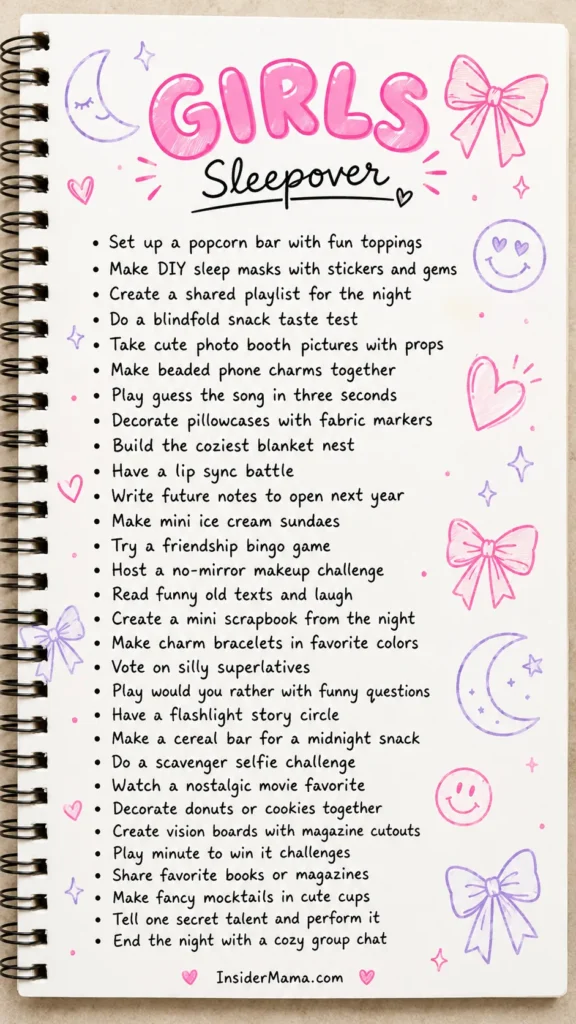 GIRLS
Sleepover
• Set up a popcorn bar with fun toppings
• Make DIY sleep masks with stickers and gems
• Create a shared playlist for the night
• Do a blindfold snack taste test
• Take cute photo booth pictures with props
• Make beaded phone charms together
• Play guess the song in three seconds
• Decorate pillowcases with fabric markers
• Build the coziest blanket nest
• Have a lip sync battle
• Write future notes to open next year
• Make mini ice cream sundaes
• Try a friendship bingo game
• Host a no-mirror makeup challenge
• Read funny old texts and laugh
• Create a mini scrapbook from the night
• Make charm bracelets in favorite colors
• Vote on silly superlatives
• Play would you rather with funny questions
• Have a flashlight story circle
• Make a cereal bar for a midnight snack
• Do a scavenger selfie challenge
• Watch a nostalgic movie favorite
• Decorate donuts or cookies together
• Create vision boards with magazine cutouts
• Play minute to win it challenges
• Share favorite books or magazines
• Make fancy mocktails in cute cups
• Tell one secret talent and perform it
• End the night with a cozy group chat
InsiderMama.com